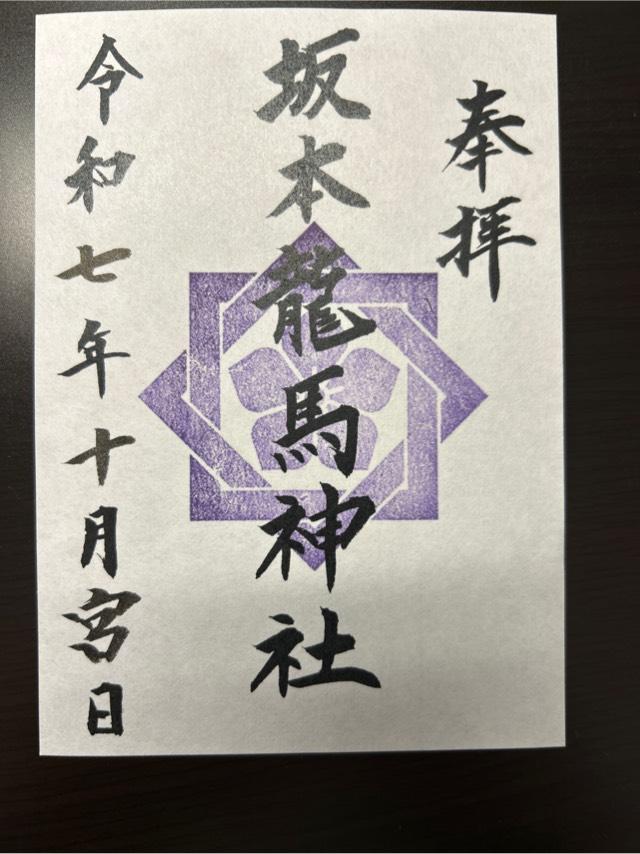 奉拝
坂本龍馬神社
令和七年十月宮日